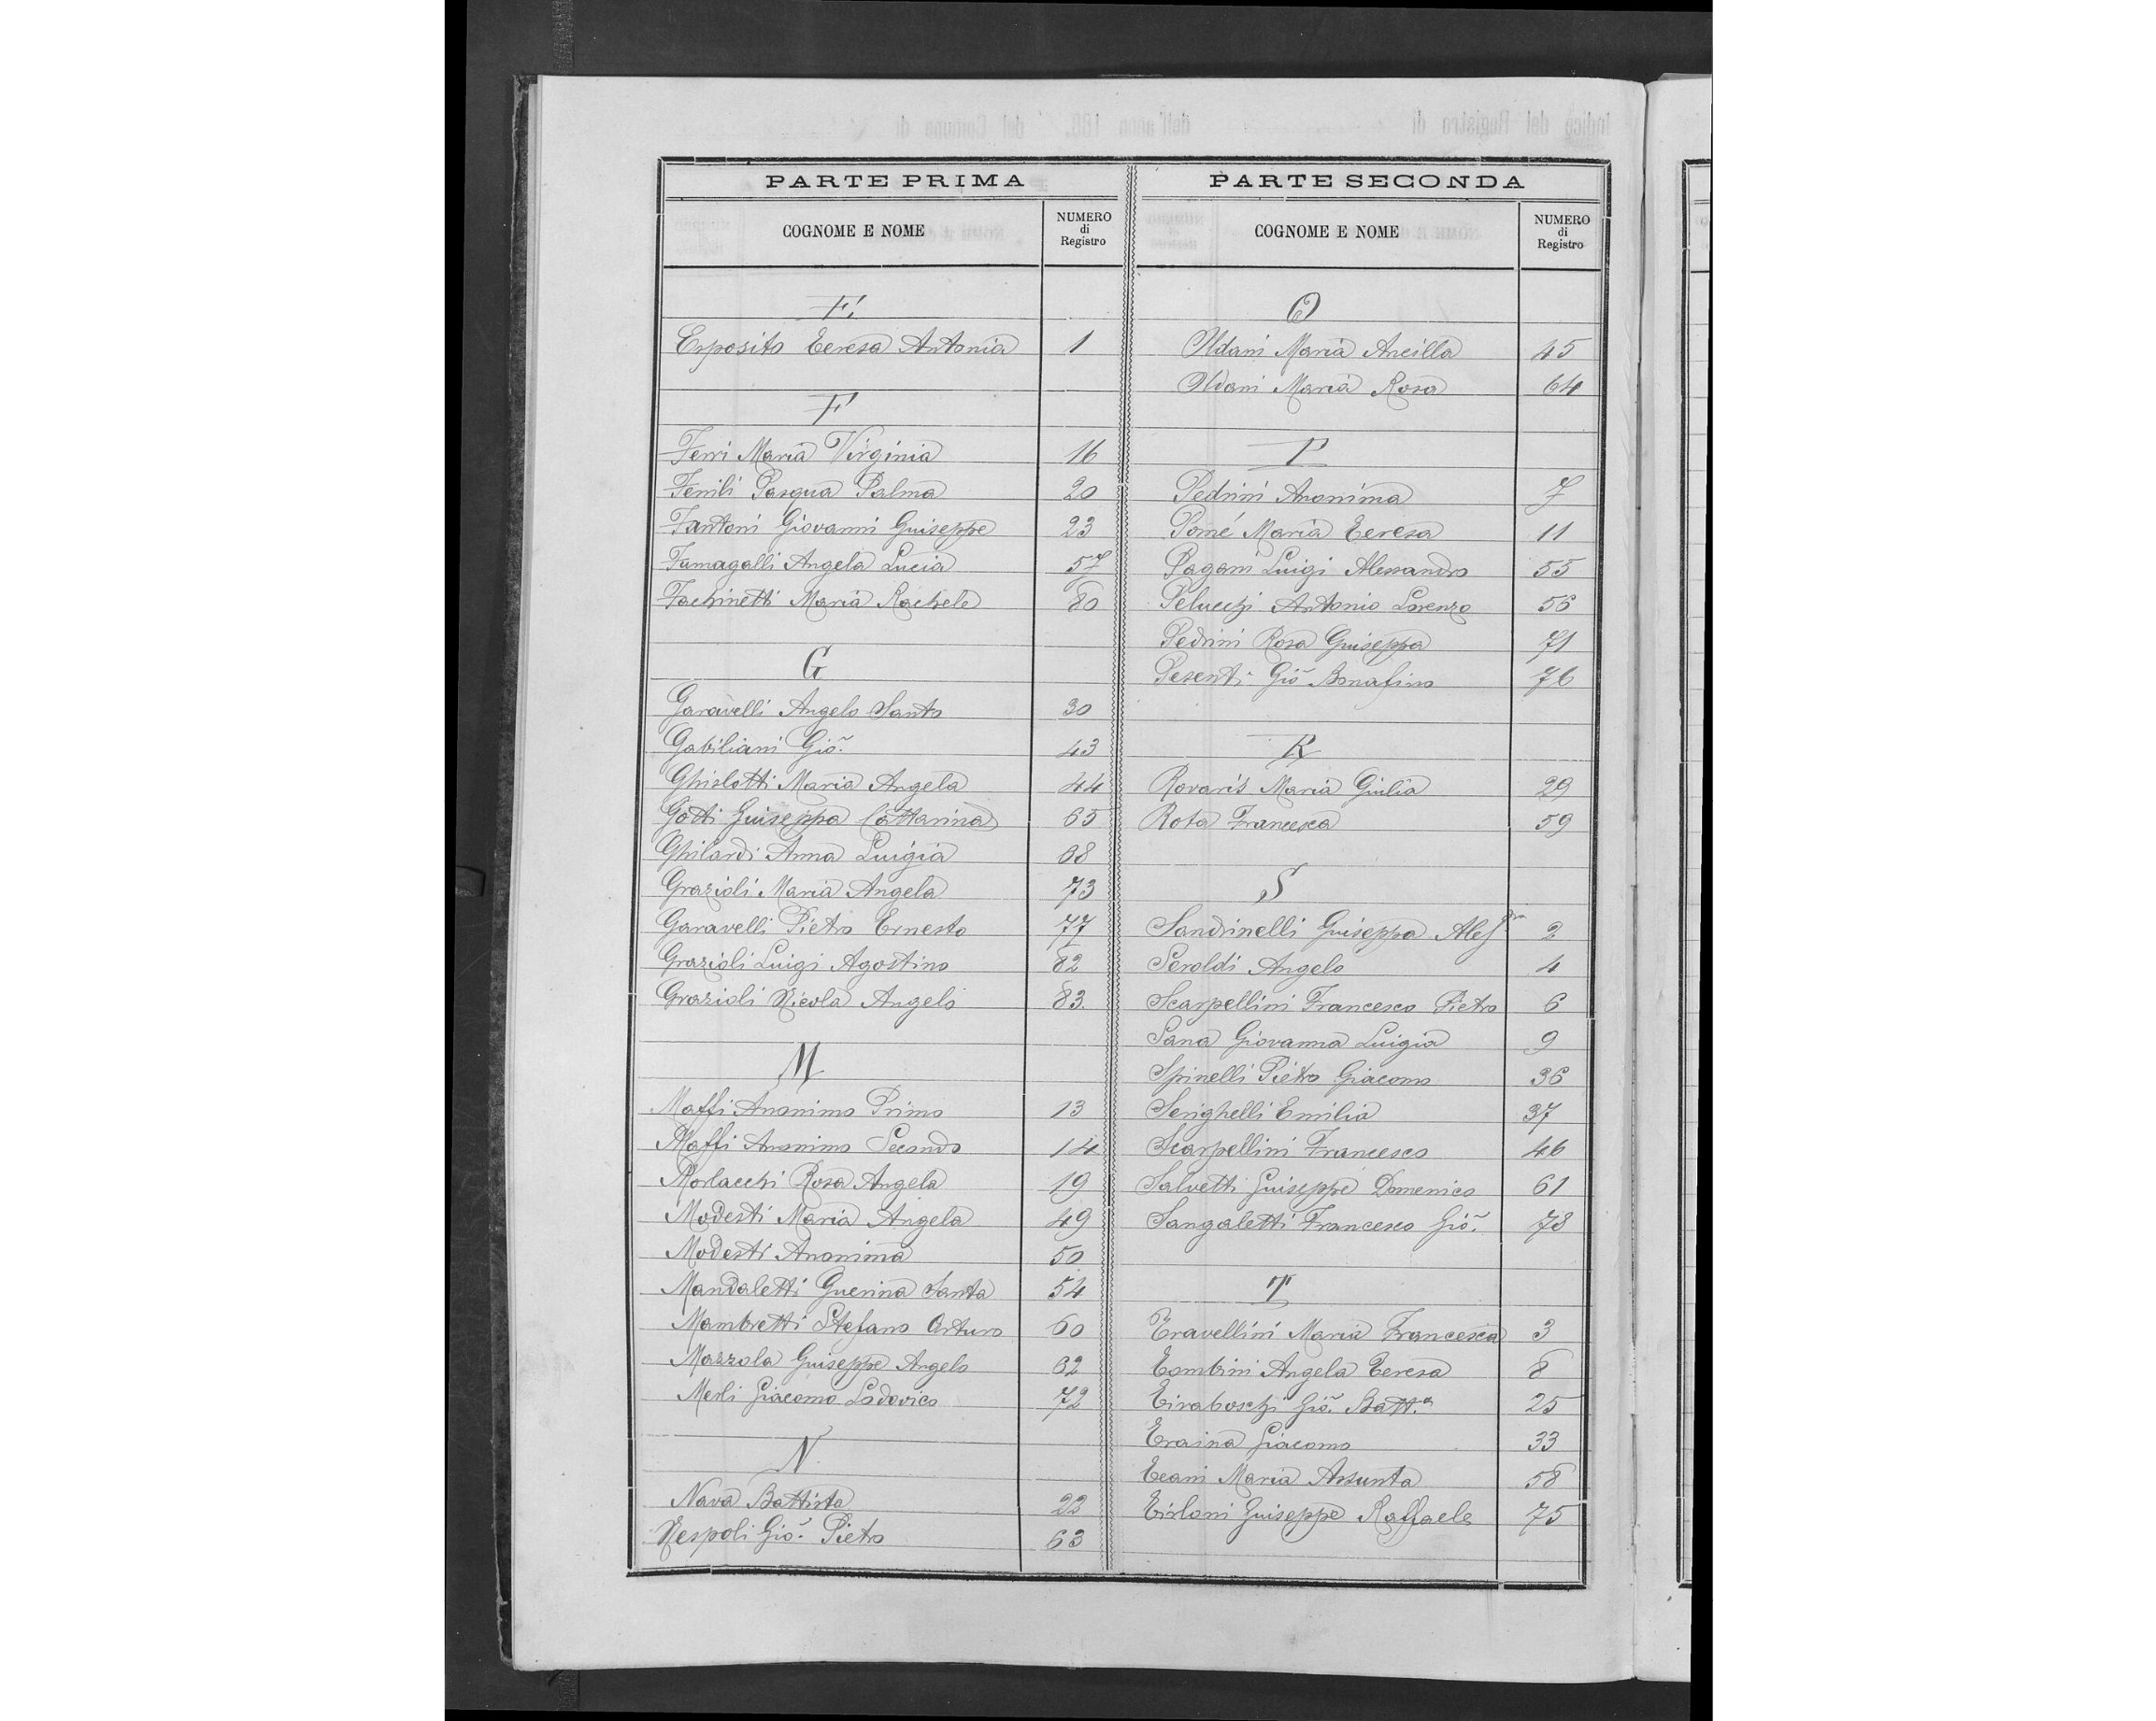 PARTE PRIMA
COGNOME E NOME
NUMERO
di
Registro
E
Esposito Teresa Antonia 1
F
Ferri Maria Virginia 16
Fenili Pasqua Palma 20
Fantoni Giovanni Guiseppe 23
Fumagalli Angela Lucia 57
Fachinetti Maria Rachele 80
G
Garavelli Angelo Santo 30
Gabiliani Gio. 43
Ghislotti Maria Angela 44
Gotti Guiseppa Cattarina 65
Ghilardi Anna Luigia 68
Grazioli Maria Angela 73
Garavelli Pietro Ernesto 77
Grazioli Luigi Agostino 82
Grazioli Nicola Angelo 83.
M
Maffi Anonimo Primo 13
Maffi Anonimo Secondo 14
Morlacchi Rosa Angela 19
Modesti Maria Angela 49
Modesti Anonima 50
Mandaletti Guerina Santa 54
Mambretti Stefano Arturo 60
Mazzola Guiseppe Angelo 62
Merli Giacomo Lodovico 72
N
Nava Battista 22
Nespoli Gio. Pietro 63
PARTE SECONDA
COGNOME E NOME
NUMERO
di
Registro
O
Oldani Maria Ancilla 45
Oldani Maria Rosa 64
P
Pedrini Anonima 7
Pomé Maria Teresa 11
Pagani Luigi Alessandro 55
Pelucchi Antonio Lorenzo 56
Pedrini Rosa Guiseppa 71
Pesenti Gio Bonafino 76
R
Rovaris Maria Giulia 29
Rota Francesca 59
S
Sandrinelli Guiseppa Aless 2
Seroldi Angelo 4
Scarpellini Francesco Pietro 6
Sana Giovanna Luigia 9
Spinelli Pietro Giacomo 36
Serighelli Emilia 37
Scarpellini Francesco 46
Salvetti Guiseppe Domenico 61
Sangaletti Francesco Gio. 78
T
Travellini Maria Francesca 3
Tombini Angela Teresa 8
Tiraboschi Gio. Batt.a 25
Traina Giacomo 33
Teani Maria Assunta 58
Tirloni Guiseppe Raffaele 75